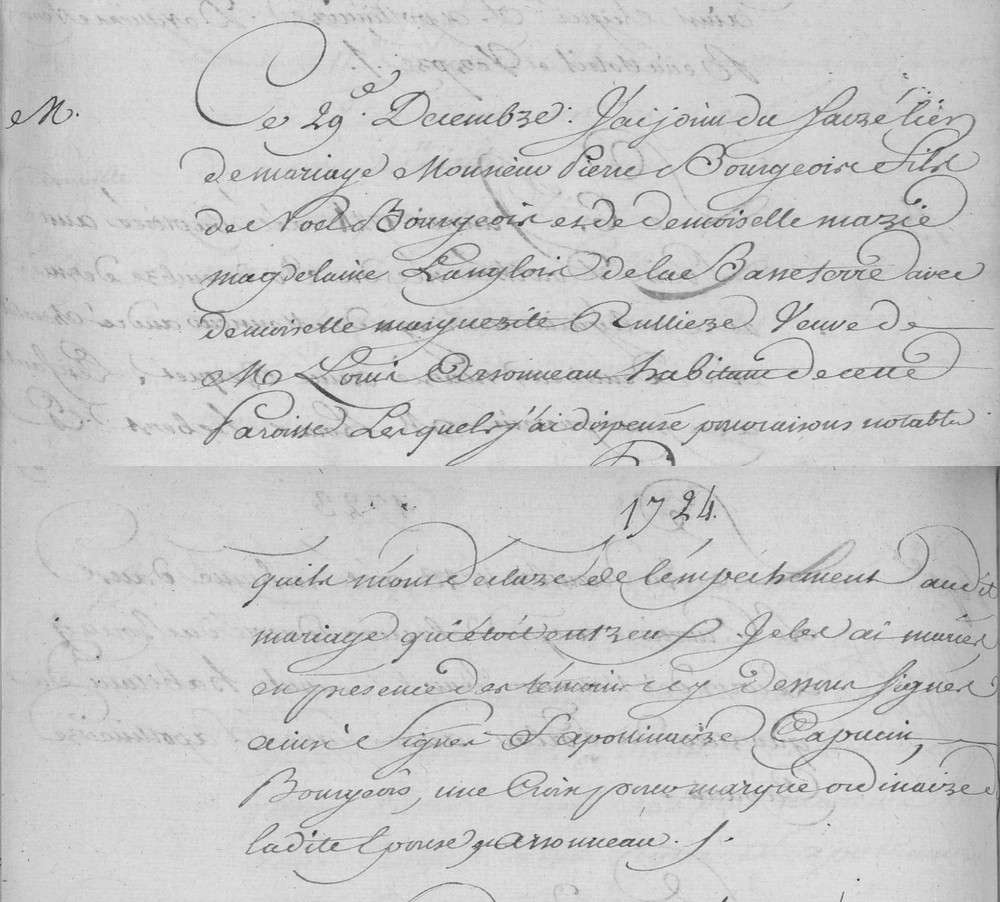 M.
Ce 29.e Decembre. J'ai joint du sacré lien
de mariage Monsieur Pierre Bourgeois Fils
de Noel Bourgeois et de demoiselle marie
magdelaine Langlois de la Basseterre avec
demoiselle marguerite Rulliere Veuve de
M Louis Arsonneau habitant de cette
Paroisse Lesquels j'ai dispensé pour raisons notables
1724.
qu'ils m'ont declaré de l'empechement audit
mariage qui étoit entr'eux. Je les ai mariés
en presence des témoins cy dessous signés
ainsi signés Sapollinaire Capucin,
Bourgeois, une Croix pour marque ordinaire de
ladite Epouse, Arsonneau.